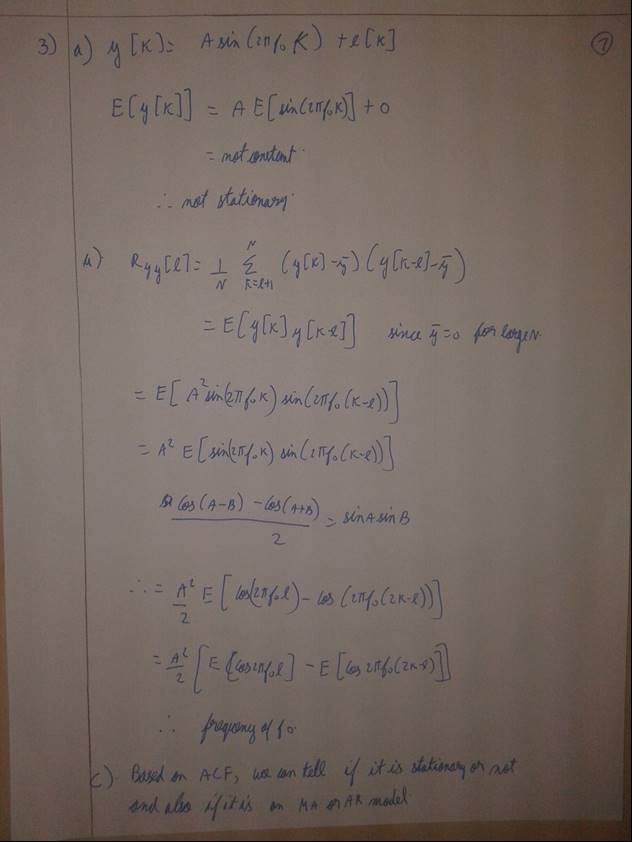 3) a) y[k] = A sin(2πf₀k) + e[k] ①
E[y[k]] = A E[sin(2πf₀k)] + 0
= not constant.
∴ not stationary.
R_yy[l] = 1/N Σ_{k=l+1}^{N} (y[k]-ȳ)(y[k-l]-ȳ)
= E[y[k] y[k-l]] since ȳ=0 for large N.
= E[A² sin(2πf₀k) sin(2πf₀(k-l))]
= A² E[sin(2πf₀k) sin(2πf₀(k-l))]
(cos(A-B) - cos(A+B))/2 = sinA sinB
∴ = A²/2 E[cos(2πf₀l) - cos(2πf₀(2k-l))]
= A²/2 [E[cos2πf₀l] - E[cos2πf₀(2k-l)]]
∴ frequency of f₀.
c). Based on ACF, we can tell if it is stationary or not
and also if it is an MA or AR model.